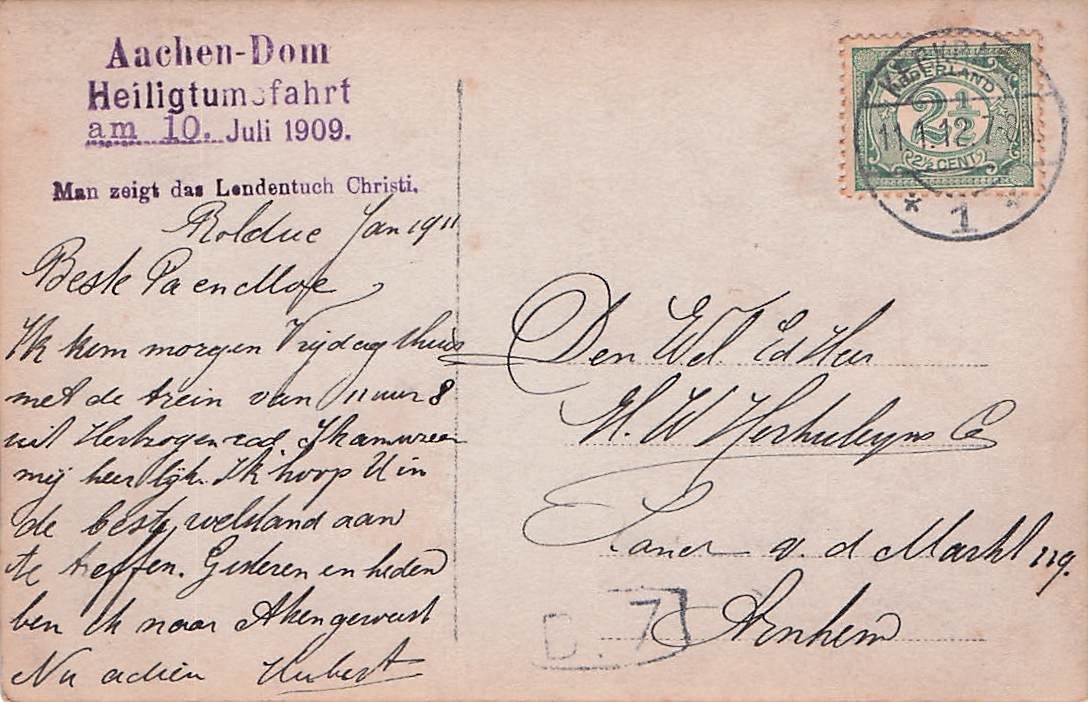 Aachen-Dom
Heiligtumsfahrt
am 10. Juli 1909.
Man zeigt das Lendentuch Christi.
NEDERLAND
2½
2½ CENT
11.1.12
1
Rolduc Jan 1911
Beste Pa en Moe
Ik kom morgen Vrijdag thuis
met de trein van 11 uur 8
uit Herzogenrad Ik amuseer
mij heerlijk. Ik hoop U in
de beste welstand aan
te treffen. Gisteren en heden
ben ik naar Aken geweest
Nu adieu Hubert
Den Wel Ed Heer
H. W.
v. d. Markt 119.
Arnhem
D. 7